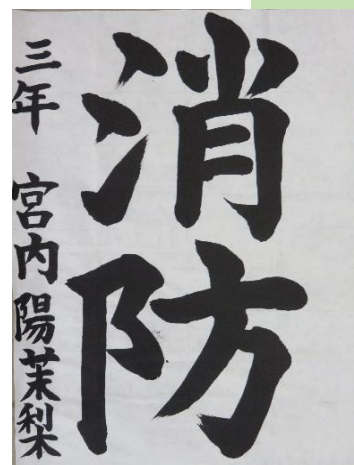 消防
三年 宮内陽茉梨